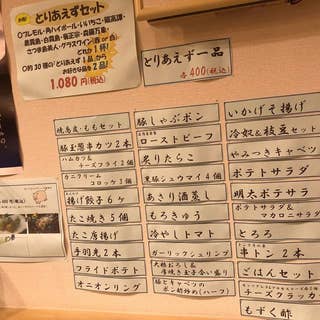 とりあえずセット
○プレモル・角ハイボール・いいちこ・銀高譚・
さつま島美人・グラスワイン(赤 or 白)
どれか1杯!
○約30種の「とりあえず1品」から
お好きな品を2品!
1,080円(税込)
とりあえず一品
各400(税込)
焼鳥皮・ももセット
豚玉葱串カツ2本
ハムカツ&
チーズフライ2個
カニクリーム
コロッケ3個
揚げ餃子6ケ
たこ焼き5個
たこ唐揚げ
手羽元2本
フライドポテト
オニオンリング
豚しゃぶポン
ローストビーフ
炙りたらこ
黒豚シュウマイ4個
あさり酒蒸し
もろきゅう
冷やしトマト
ガーリックシュリンプ
大根おろし&
厚焼き玉子合い盛り
豚とキャベツの
ポン酢炒め(ハーフ)
いかげそ揚げ
冷奴&枝豆セット
やみつきキャベツ
ポテトサラダ
明太ポテサラ
ポテトサラダ&
マカロニサラダ
とろろ
串トン2本
ごはんセット
チーズクラッカー
もずく酢